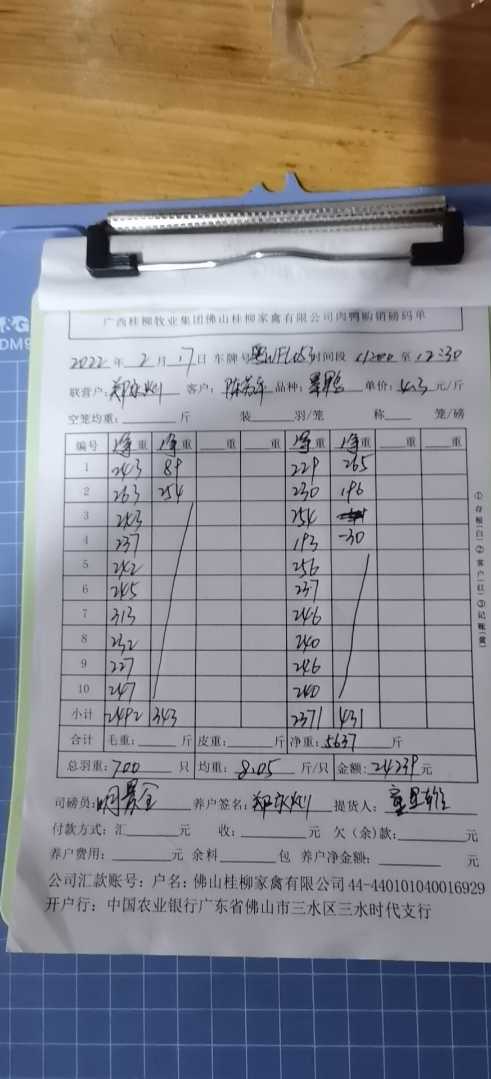 广西桂柳牧业集团佛山桂柳家禽有限公司肉鸭购销磅码单
2022 年 2 月 17 日 车牌号 时间段 至 12:30
联营户: 客户: 品种: 单价: 4.3 元/斤
空笼均重: 斤 装 羽/笼 称 笼/磅
编号 净重 净重 重 重 净重 净重 重 重
1 243 89 229 265
2 263 254 230 196
3 243 254
4 237 193 -30
5 242 256
6 245 237
7 313 246
8 232 240
9 227 246
10 247 240
小计 2492 343 2371 431
合计 毛重: 斤 皮重: 斤 净重: 5637 斤
总羽重: 700 只 均重: 8.05 斤/只 金额: 24239 元
司磅员: 养户签名: 提货人:
付款方式: 汇 元 收: 元 欠(余)款: 元
养户费用: 元 余料 包 养户净金额: 元
公司汇款账号: 户名: 佛山桂柳家禽有限公司 44-440101040016929
开户行: 中国农业银行广东省佛山市三水区三水时代支行
①存根(白)②客户(红)③记账(黄)
M&G